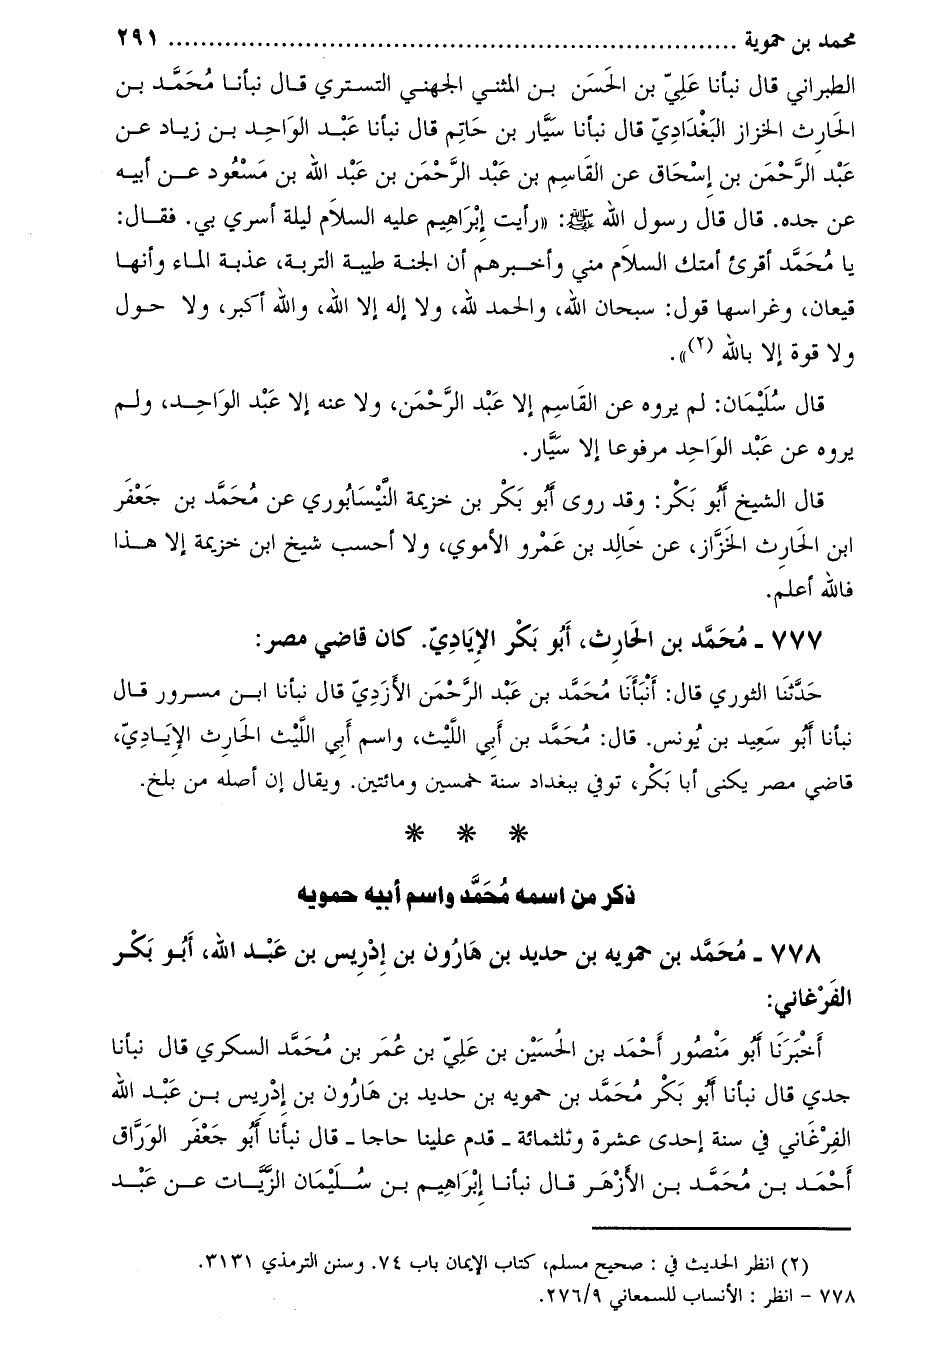 محمد بن حموية ........................................................................ ٢٩١
الطبراني قال نبأنا عَلِيّ بن الحَسَن بن المثنى الجهني التستري قال نبأنا مُحَمَّد بن
الحَارِث الخزاز البَغْدَادِيّ قال نبأنا سَيَّار بن حَاتِم قال نبأنا عَبْد الوَاحِد بن زياد عن
عَبْد الرَّحْمَن بن إِسْحَاق عن القَاسِم بن عَبْد الرَّحْمَن بن عَبْد الله بن مَسْعُود عن أبيه
عن جده. قال قال رسول الله ﷺ: «رأيت إِبْرَاهِيم عليه السلاَم ليلة أسري بي. فقال:
يا مُحَمَّد أقرئ أمتك السلاَم مني وأخبرهم أن الجنة طيبة التربة، عذبة الماء وأنها
قيعان، وغراسها قول: سبحان الله، والحمد لله، ولا إله إلا الله، والله أكبر، ولا حول
ولا قوة إلا بالله (٢)».
قال سُلَيْمَان: لم يروه عن القَاسِم إلا عَبْد الرَّحْمَن، ولا عنه إلا عَبْد الوَاحِد، ولم
يروه عن عَبْد الوَاحِد مرفوعا إلا سَيَّار.
قال الشيخ أَبُو بَكْر: وقد روى أَبُو بَكْر بن خزيمة النَّيْسَابُوري عن مُحَمَّد بن جَعْفَر
ابن الحَارِث الخَزَّاز، عن خَالِد بن عَمْرو الأموي، ولا أحسب شيخ ابن خزيمة إلا هذا
فالله أعلم.
٧٧٧ ـ مُحَمَّد بن الحَارِث، أَبُو بَكْر الإِيَادِيّ. كان قاضي مصر:
حَدَّثَنَا الثوري قال: أَنْبَأَنَا مُحَمَّد بن عَبْد الرَّحْمَن الأَزَدِيّ قال نبأنا ابن مسرور قال
نبأنا أَبُو سَعِيد بن يُونس. قال: مُحَمَّد بن أَبِي اللَّيْث، واسم أَبِي اللَّيْث الحَارِث الإِيَادِيّ،
قاضي مصر يكنى أبا بَكْر، توفي ببغداد سنة خمسين ومائتين. ويقال إن أصله من بلخ.
* * *
ذكر من اسمه مُحَمَّد واسم أبيه حمويه
٧٧٨ ـ مُحَمَّد بن حمويه بن حديد بن هَارُون بن إِدْرِيس بن عَبْد الله، أَبُو بَكْر
الفَرْغاني:
أَخْبَرَنَا أَبُو مَنْصُور أَحْمَد بن الحُسَيْن بن عَلِيّ بن عُمَر بن مُحَمَّد السكري قال نبأنا
جدي قال نبأنا أَبُو بَكْر مُحَمَّد بن حمويه بن حديد بن هَارُون بن إِدْرِيس بن عَبْد الله
الفِرْغَاني في سنة إحدى عشرة وثلثمائة ـ قدم علينا حاجا ـ قال نبأنا أَبُو جَعْفَر الوَرَّاق
أَحْمَد بن مُحَمَّد بن الأَزْهَر قال نبأنا إِبْرَاهِيم بن سُلَيْمَان الزَّيَّات عن عَبْد
(٢) انظر الحديث في : صحيح مسلم، كتاب الإيمان باب ٧٤. وسنن الترمذي ٣١٣١.
٧٧٨ – انظر : الأنساب للسمعاني ٢٧٦/٩.